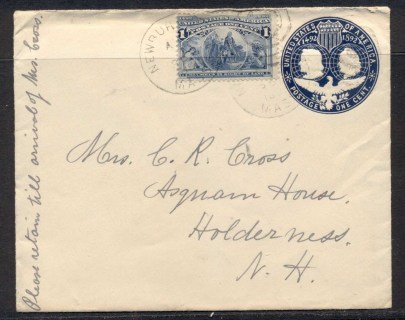 Please retain till arrival of Mrs. Cross.
NEWBU
MA
UNITED STATES OF AMERICA
1
1
UNITED STATES OF AMERICA
1492 1892
POSTAGE ONE CENT.
Mrs. C. R. Cross
Asquam House.
Holderness.
N. H.